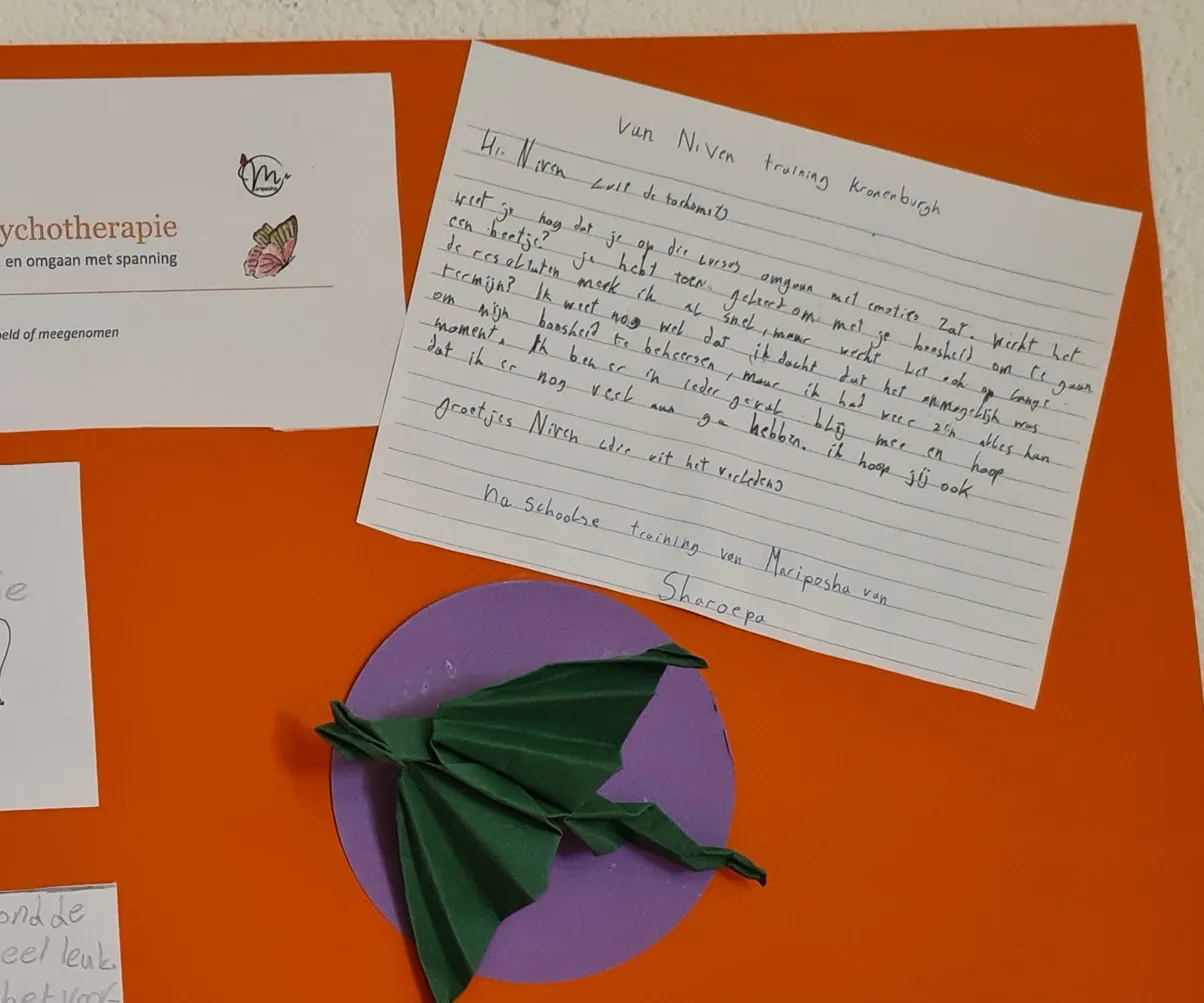 Mariposha
ychotherapie
en omgaan met spanning
eeld of meegenomen
Van Niven training Kronenburgh
Hi. Niven (uit de toekomst)
weet je nog dat je op die cursus omgaan met emoties zat. Werkt het
een beetje? je hebt toen geleerd om met je boosheid om te gaan
de resultaten merk ik al snel, maar werkt het ook op lange
termijn? Ik weet nog wel dat ik dacht dat het onmogelijk was
om mijn boosheid te beheersen, maar ik had weer zo'n alles kan
moment. Ik ben er in ieder geval blij mee en hoop
dat ik er nog veel aan ga hebben. ik hoop jij ook
groetjes Niven (die uit het verleden)
Na schoolse training van Mariposha van
Sharoepa
ie
ond de
eel leuk.
het voor-